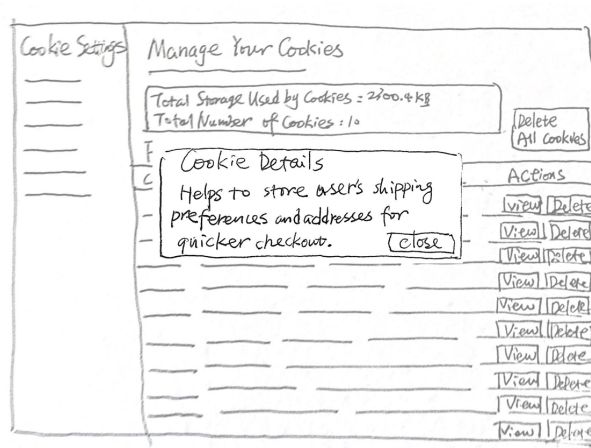 Cookie Settings
Manage Your Cookies
Total Storage Used by Cookies = 2300.4 KB
Total Number of Cookies : 10
Delete
All Cookies
Cookie Details
Helps to store user's shipping
preferences and addresses for
quicker checkout.
close
Actions
View Delete
View Delete
View Delete
View Delete
View Delete
View Delete
View Delete
View Delete
View Delete
View Delete